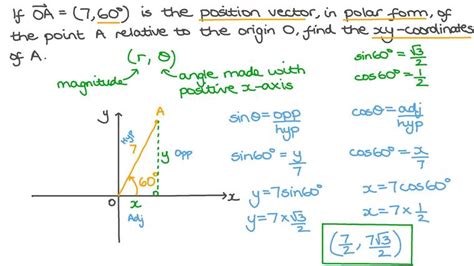 If OA = (7,60°) is the position vector, in polar form, of
the point A relative to the origin O, find the xy-coordinates
of A.
(r, θ)
magnitude
angle made with
positive x-axis
sin60° = √3/2
cos60° = 1/2
y
A
Hyp
7
y
Opp
60°
O
x
x
Adj
sinθ = opp/hyp
sin60° = y/7
y = 7sin60°
y = 7 × √3/2
cosθ = adj/hyp
cos60° = x/7
x = 7cos60°
x = 7 × 1/2
(7/2, 7√3/2)